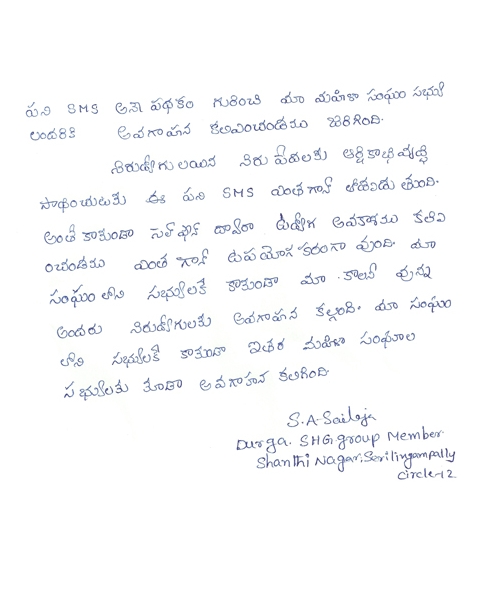 పని SMS అనే పథకం గురించి మా మహిళా సంఘం సభ్యు
లందరికి అవగాహన కలిపించడము జరిగింది.
నిరుద్యోగులయిన నిరుపేదలకు ఆర్థికాభివృద్ధి
సాధించుటకు ఈ పని SMS ఎంతగానో తోడ్పడుతుంది.
అంతే కాకుండా సెల్ ఫోన్ ద్వారా ఉద్యోగ అవకాశము కలిపి
ంచడము ఎంత గానో ఉపయోగకరంగా వుంది. మా
సంఘంలోని సభ్యులకే కాకుండా మా కాలనీ వున్న
అందరు నిరుద్యోగులకు అవగాహన కల్గింది. మా సంఘం
లోని సభ్యులకే కాకుండా ఇతర మహిళా సంఘాల
సభ్యులకు కూడా అవగాహన కలిగింది.
S.A. Saileja
Durga. SHG group Member
Shanthi Nagar, Serilingampally
Circle-12